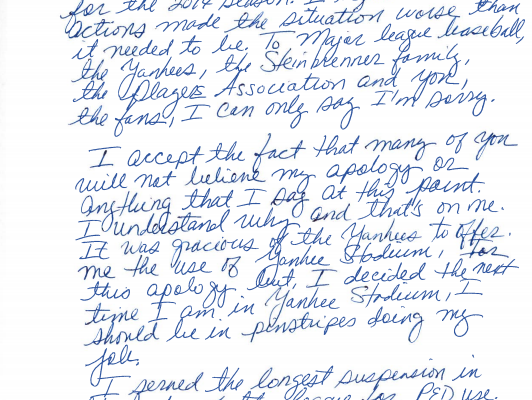 for the 2014 season. I
actions made the situation worse than
it needed to be. To Major league baseball,
the Yankees, the Steinbrenner family,
the Players Association and you,
the fans, I can only say I'm sorry.
I accept the fact that many of you
will not believe my apology or
anything that I say at this point.
I understand why and that's on me.
It was gracious of the Yankees to offer
me the use of Yankee Stadium, for
this apology but, I decided the next
time I am in Yankee Stadium, I
should be in pinstripes doing my
job.
I served the longest suspension in
the league for PED use.